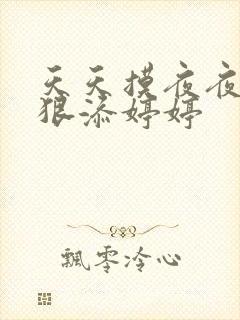 天天摸夜夜
狠添婷婷
飘零冷心